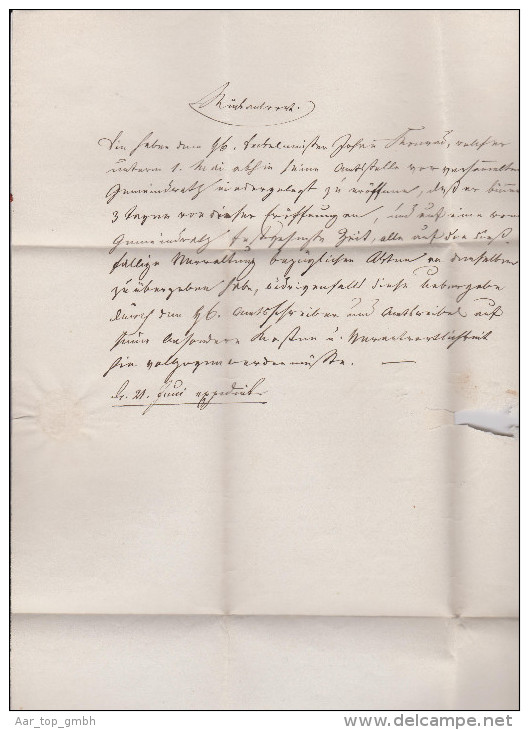 Rückantwort.
Sie haben dem Hh. Seckelmeister Johann Konrad, welcher
unterm 1. Mai abhin seine Amtsstelle vor versammeltem
Gemeindrath niedergelegt zu eröffnen, daß er binnen
3 Tagen von dieser Eröffnung an, und auf eine vom
Gemeindrath Zeit, alle auf die dies
fällige Verwaltung bezüglichen Akten an denselben
zu übergeben habe, widrigenfalls diese Uebergabe
durch den Hh. Amtsschreiber und Amtsweibel auf
seine besondere Kosten u. Verantwortlichkeit
hin vollzogen werden müßte. —
21. Juni expedirt
Aar_top_gmbh
www.delcampe.net